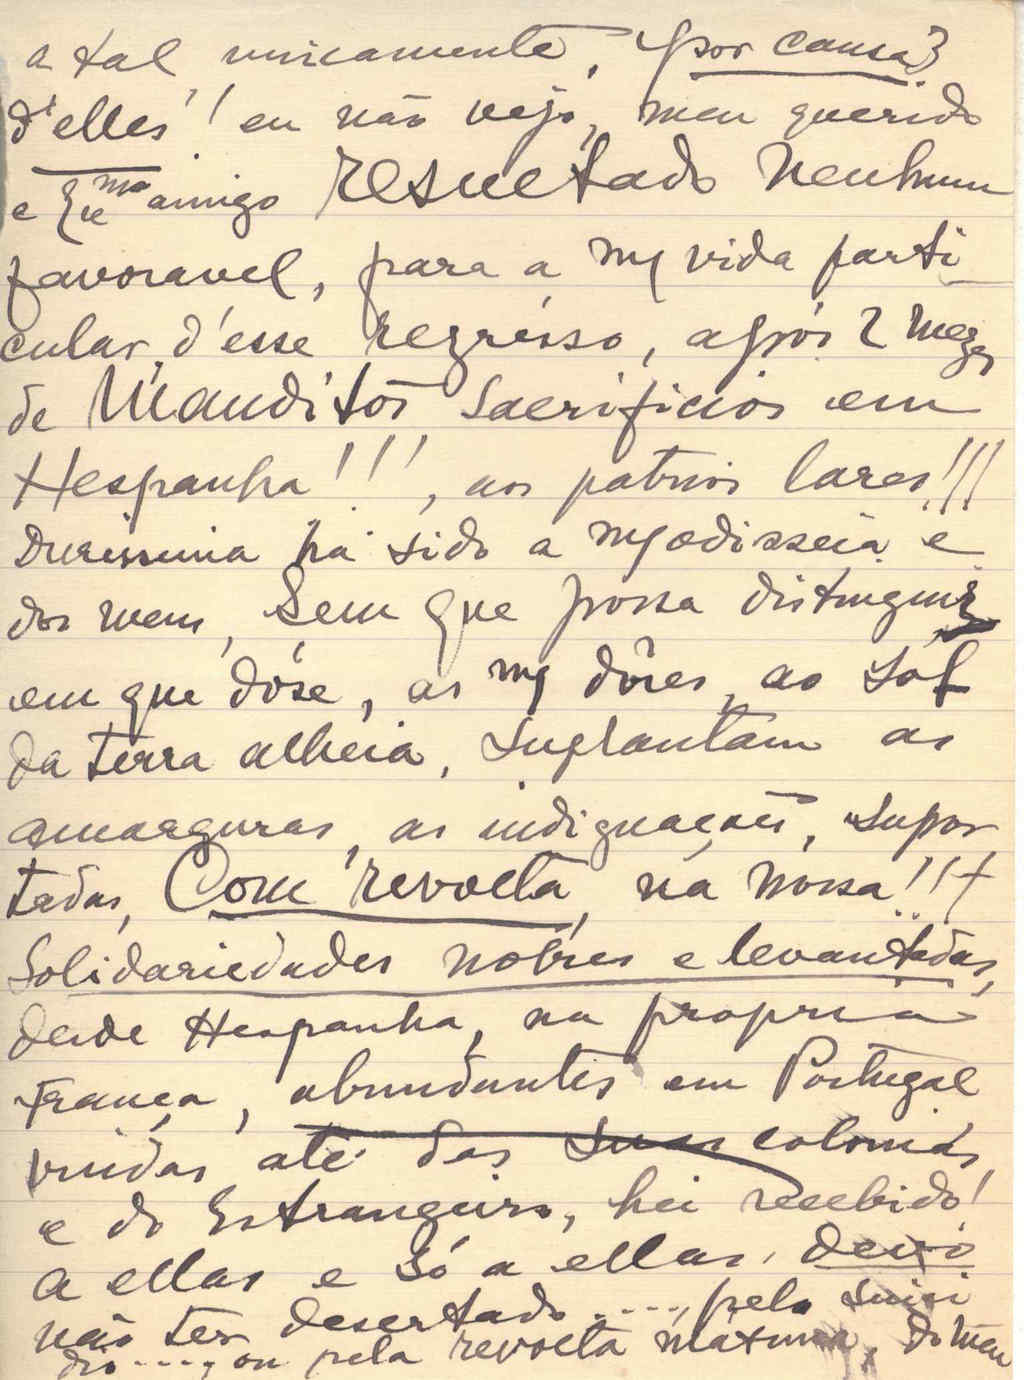 a tal unicamente, (por causa?
d'elles! eu não vejo, meu querido
e Exmo amigo resultado nenhum
favoravel, para a my vida parti
cular, d'esse regrésso, após 2 mezes
de Mauditos Sacrificios em
Hespanha!!!, aos patrios lares!!!
Durissima há sido a my odisseia e
dos meus, Sem que possa distinguir
em que dóse, as my dôres, ao sól
da terra alheia, suplantam as
amarguras, as indignações, supor
tadas, Com revolta, na nossa!!!
Solidariedades nobres e levantadas,
desde Hespanha, na propria
França, abundantes em Portugal
vindas até das suas colonias,
e do Estrangeiro, hei recebido!
a ellas e só a ellas, devo
não ter desertado...., pelo suici
dio...., ou pela revolta máxima, do meu